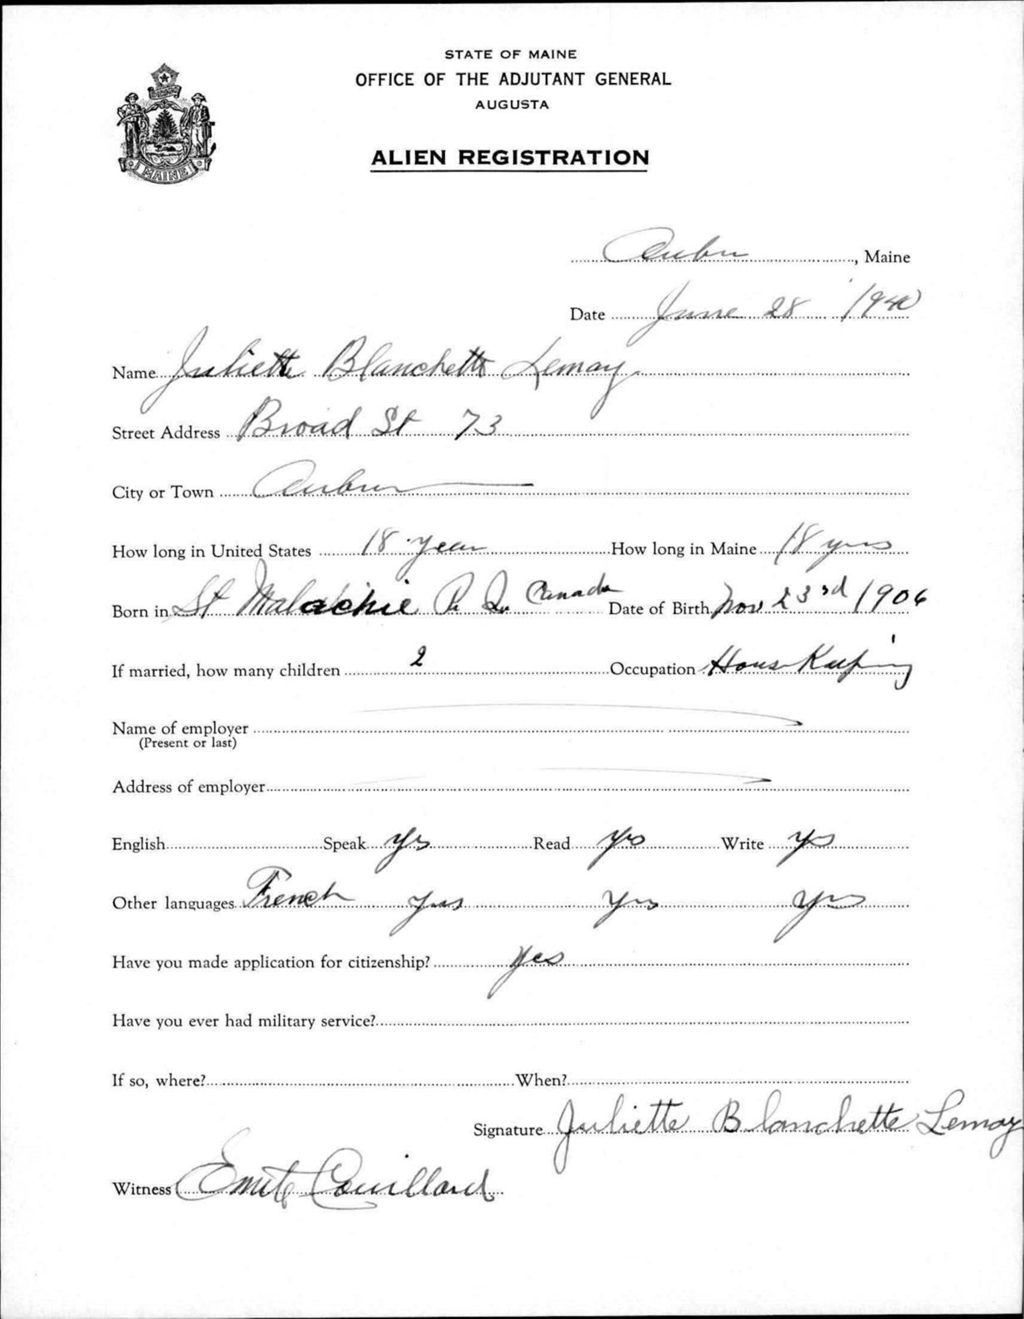 STATE OF MAINE
OFFICE OF THE ADJUTANT GENERAL
AUGUSTA
ALIEN REGISTRATION
MAINE
Auburn, Maine
Date June 28 1940
Name Juliette Blanchette Lemay
Street Address Broad St 73
City or Town Auburn
How long in United States 18 year How long in Maine 18 yrs
Born in St Malachie P. Qu Canada Date of Birth Nov 23rd 1906
If married, how many children 2 Occupation House Keeping
Name of employer
(Present or last)
Address of employer
English Speak yes Read yes Write yes
Other languages French yes yes yes
Have you made application for citizenship? Yes
Have you ever had military service?
If so, where? When?
Signature Juliette Blanchette Lemay
Witness Couillard